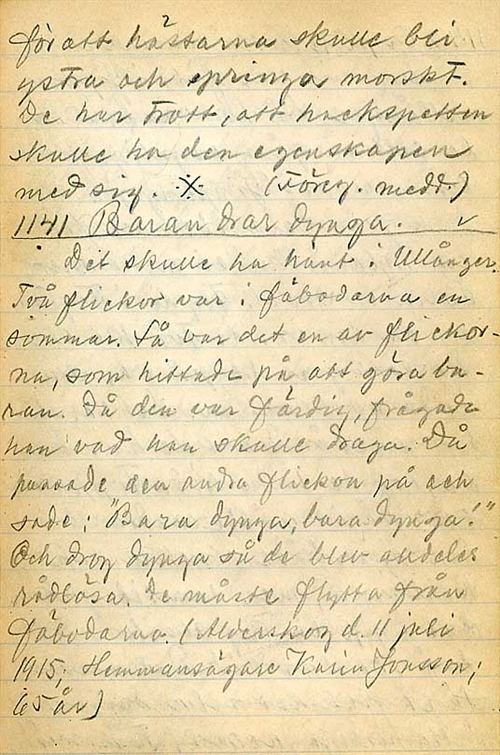 för att hästarna skulle bli
ystra och springa morskt.
De har trott, att hackspetten
skulle ha den egenskapen
med sig. ※ (Föreg. medd.)
1141 Baran drar dynga. ✓
Det skulle ha hänt i Ullånger.
Två flickor var i fäbodarna en
sommar. Så var det en av flickor-
na, som hittade på att göra ba-
ran. Då den var färdig, frågade
han vad han skulle draga. Då
passade den andra flickan på och
sade: "Bara dynga, bara dynga!"
Och drog dynga så de blev alldeles
rådlösa. De måste flytta från
fäbodarna. (Alderskog d. 11 juli
1915. Hemmansägare Karin Jonsson,
65 år)